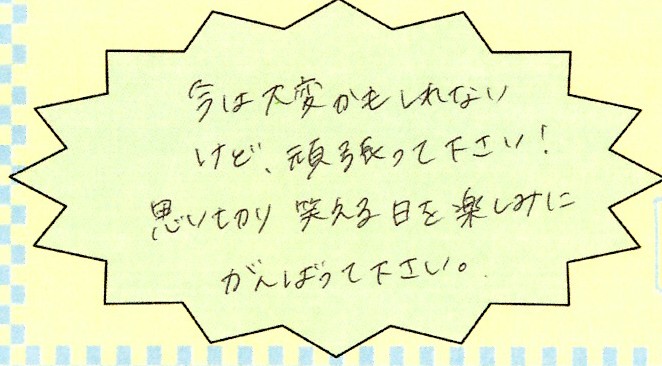 今は大変かもしれない
けど、頑張って下さい!
思い切り笑える日を楽しみに
がんばって下さい。